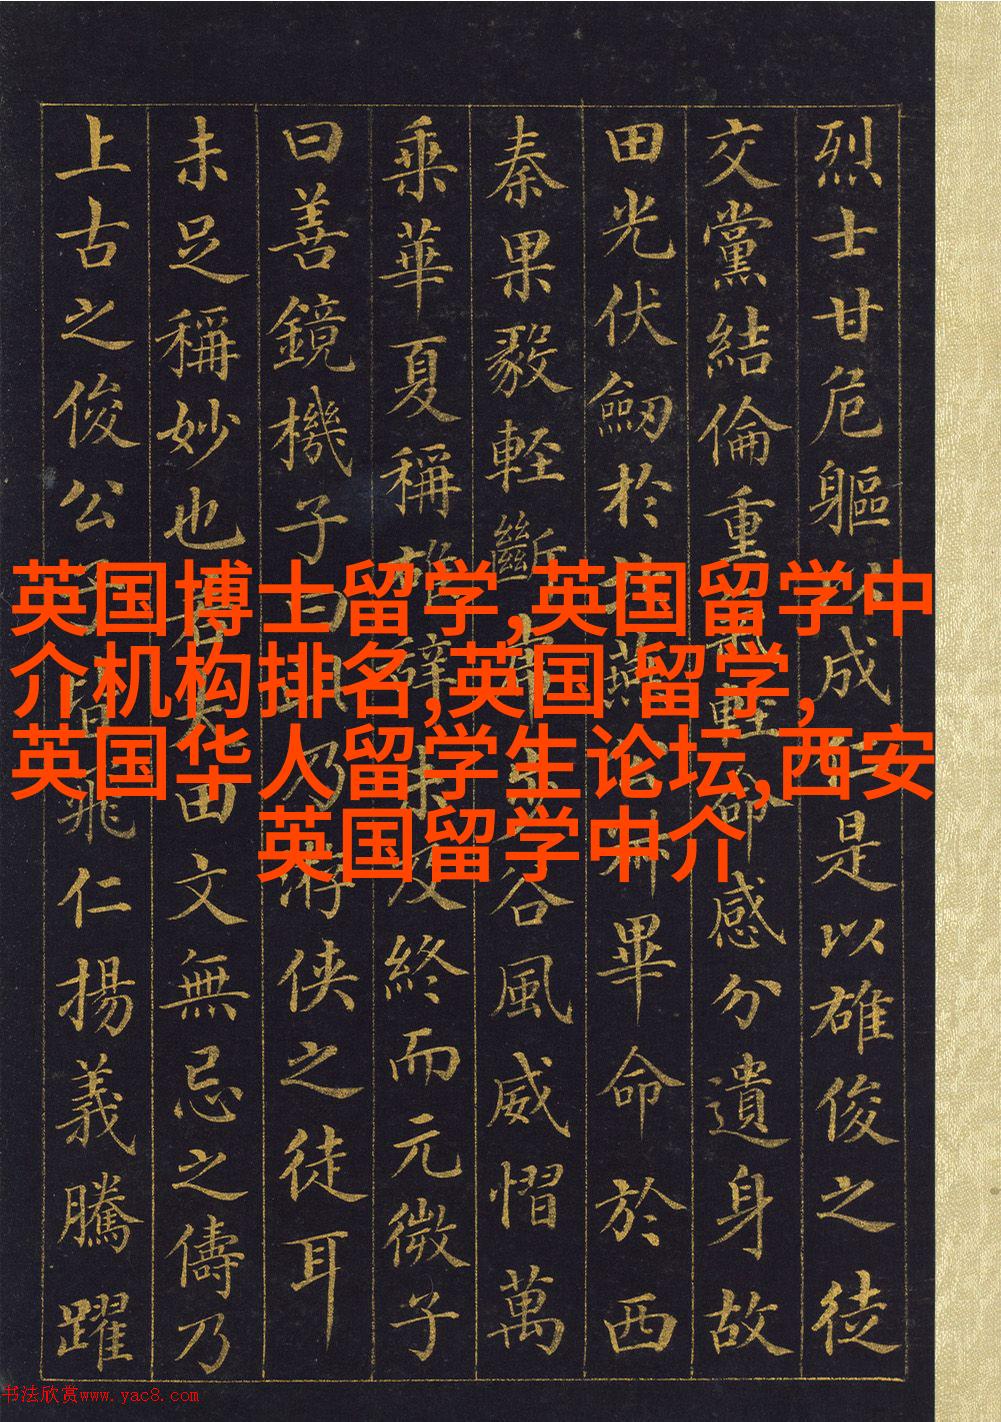 英国博士留学,英国留学中
介机构排名,英国 留学,
英国华人留学生论坛,西安
英国留学中介
烈士甘危軀成是以雄俊之徒
交黨結倫重輕命感分遺身故
田光伏劒於燕畢命於西
秦果毅輕斷谷風威慴萬
乘華夏稱辭未及終而元微子
曰善鏡機子曰乃游俠之徒耳
未足稱妙也田文無忌之儔乃
上古之俊公飛仁揚義騰躍
书法欣赏www.yac8.com